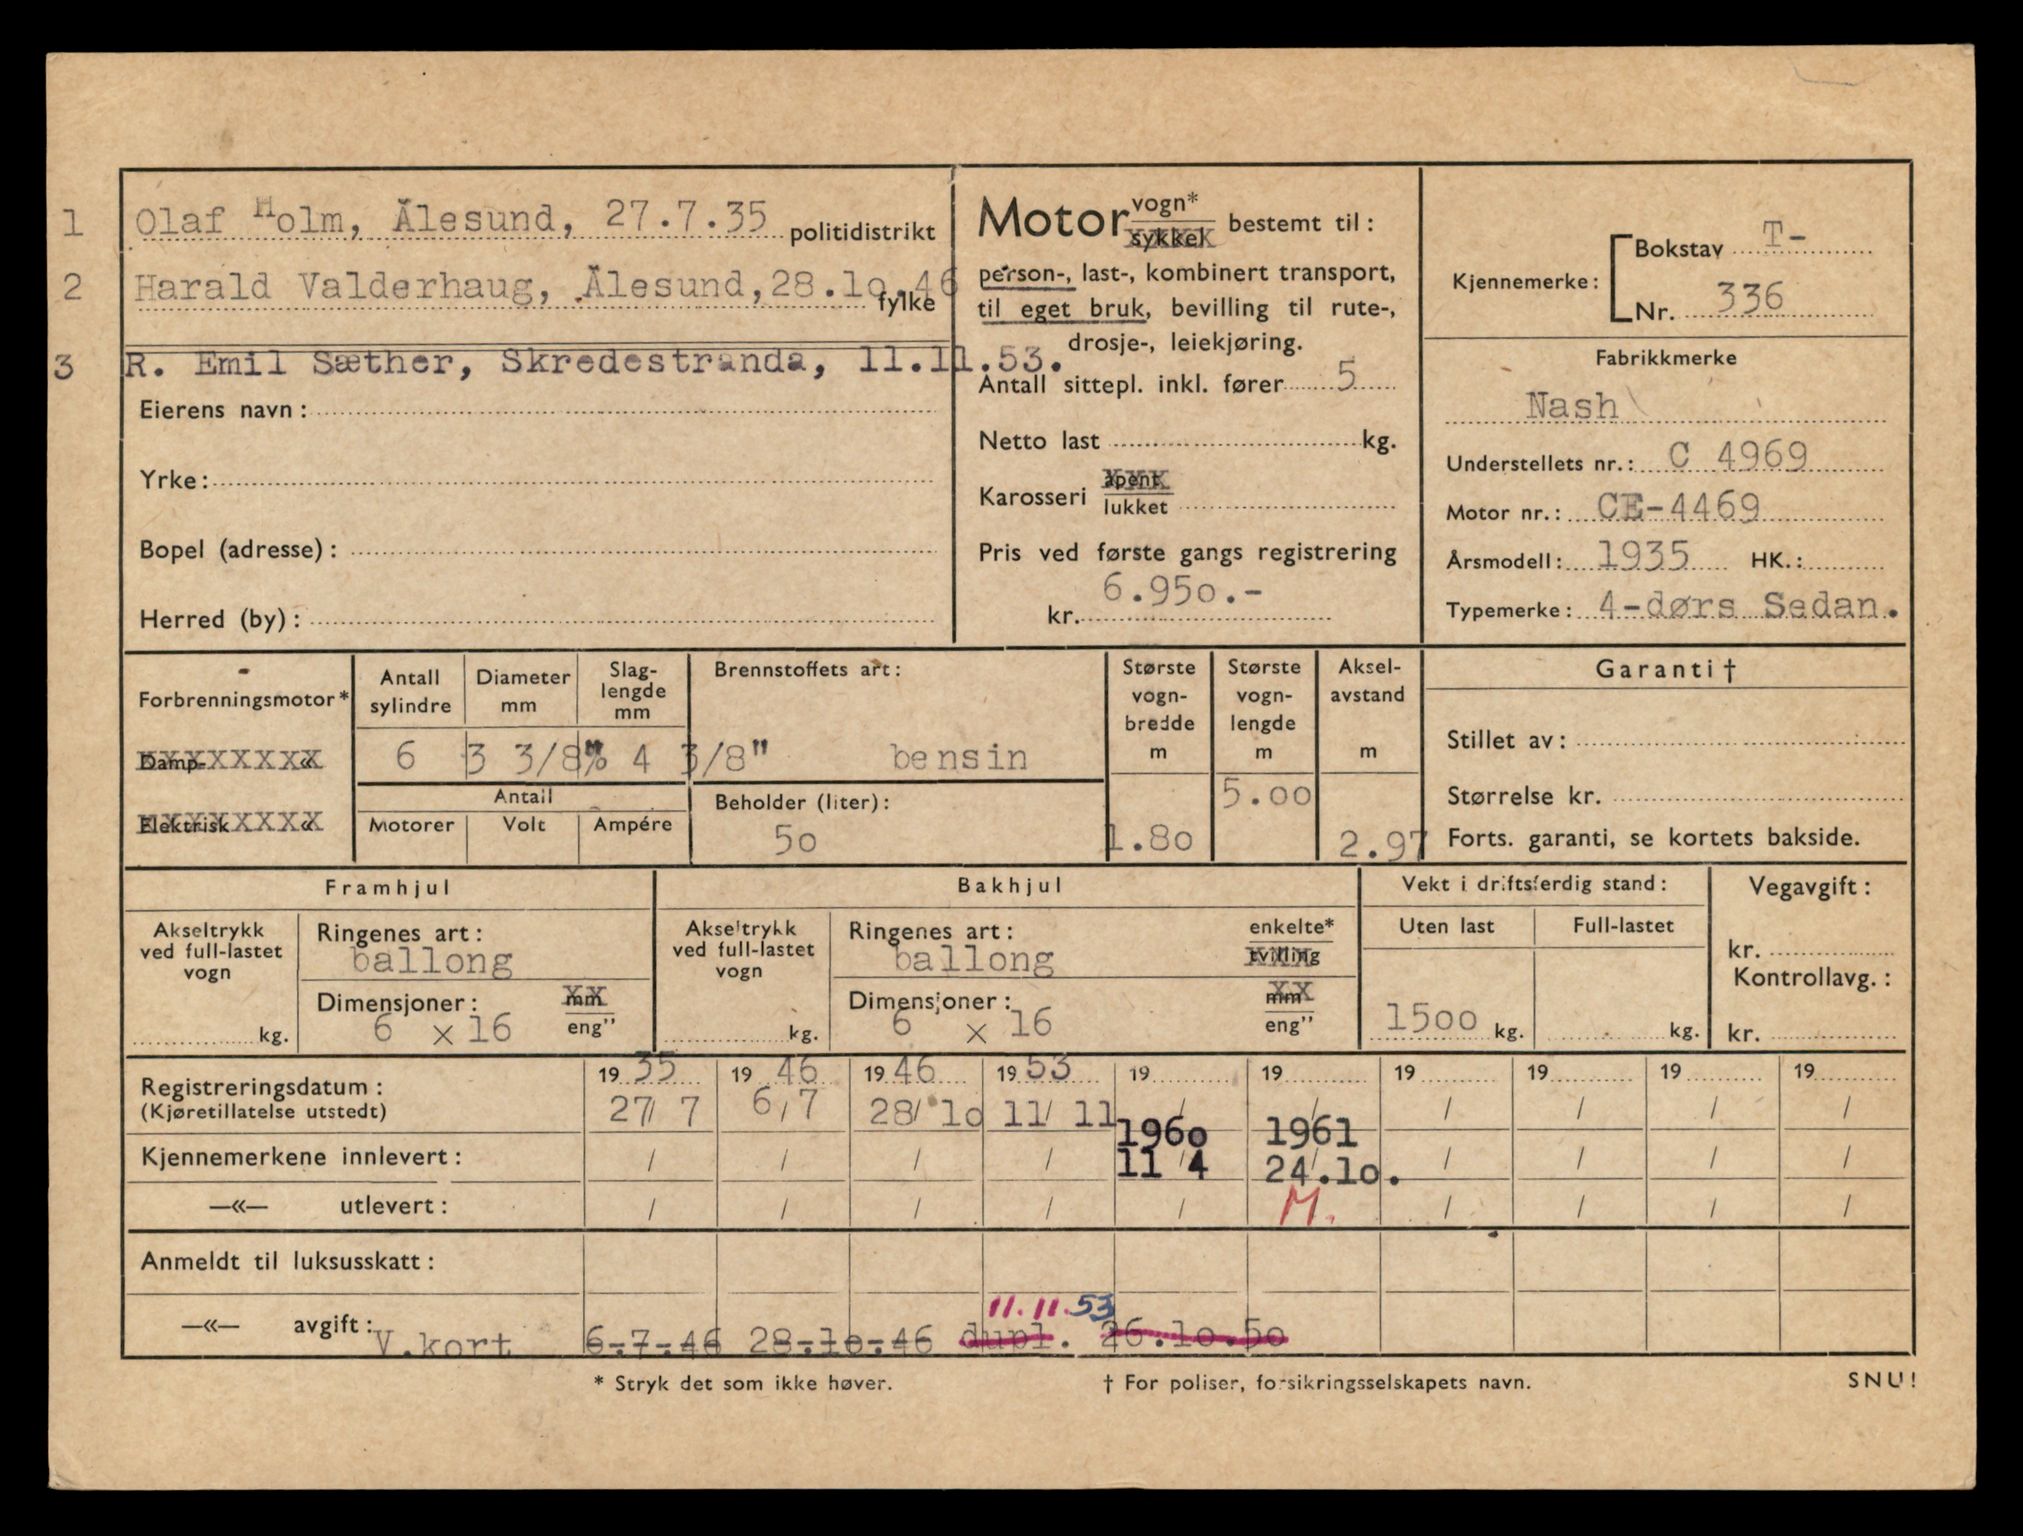 1 Olaf Holm, Ålesund, 27.7.35 politidistrikt
2 Harald Valderhaug, Ålesund, 28.10.46 fylke
3 R. Emil Sæther, Skredestranda, 11.11.53.
Eierens navn:
Yrke:
Bopel (adresse):
Herred (by):
Motor vogn* sykkel bestemt til:
person-, last-, kombinert transport,
til eget bruk, bevilling til rute-,
drosje-, leiekjøring.
Antall sittepl. inkl. fører 5
Netto last kg.
Karosseri åpent lukket
Pris ved første gangs registrering
kr. 6.950.-
Kjennemerke: Bokstav T-
Nr. 336
Fabrikkmerke
Nash
Understellets nr.: C 4969
Motor nr.: CE-4469
Årsmodell: 1935 HK.:
Typemerke: 4-dørs Sedan.
Forbrenningsmotor*
Damp- «
Elektrisk «
Antall sylindre
6
Diameter mm
3 3/8"
Slag-lengde mm
4 3/8"
Antall
Motorer Volt Ampére
Brennstoffets art:
bensin
Beholder (liter):
50
Største vogn-bredde m
1.80
Største vogn-lengde m
5.00
Aksel-avstand m
2.97
Garanti †
Stillet av:
Størrelse kr.
Forts. garanti, se kortets bakside.
Framhjul
Akseltrykk ved full-lastet vogn
kg.
Ringenes art:
ballong
Dimensjoner: mm
6 x 16 eng"
Bakhjul
Akseltrykk ved full-lastet vogn
kg.
Ringenes art: enkelte*
ballong tvilling
Dimensjoner: mm
6 x 16 eng"
Vekt i driftsferdig stand:
Uten last Full-lastet
1500 kg. kg.
Vegavgift:
kr.
Kontrollavg.:
kr.
Registreringsdatum: 1935 1946 1946 1953 19 19 19 19 19 19
(Kjøretillatelse utstedt) 27/7 6/7 28/10 11/11 / / / / / /
1960 1961
Kjennemerkene innlevert: / / / / 11/4 24.10. / / / /
—«— utlevert: / / / / / M. / / / /
Anmeldt til luksusskatt:
11.11.53
—«— avgift: V.kort 6.-7.-46 28.-10.-46 dupl. 26.10.50
* Stryk det som ikke høver. † For poliser, forsikringsselskapets navn. SNU!